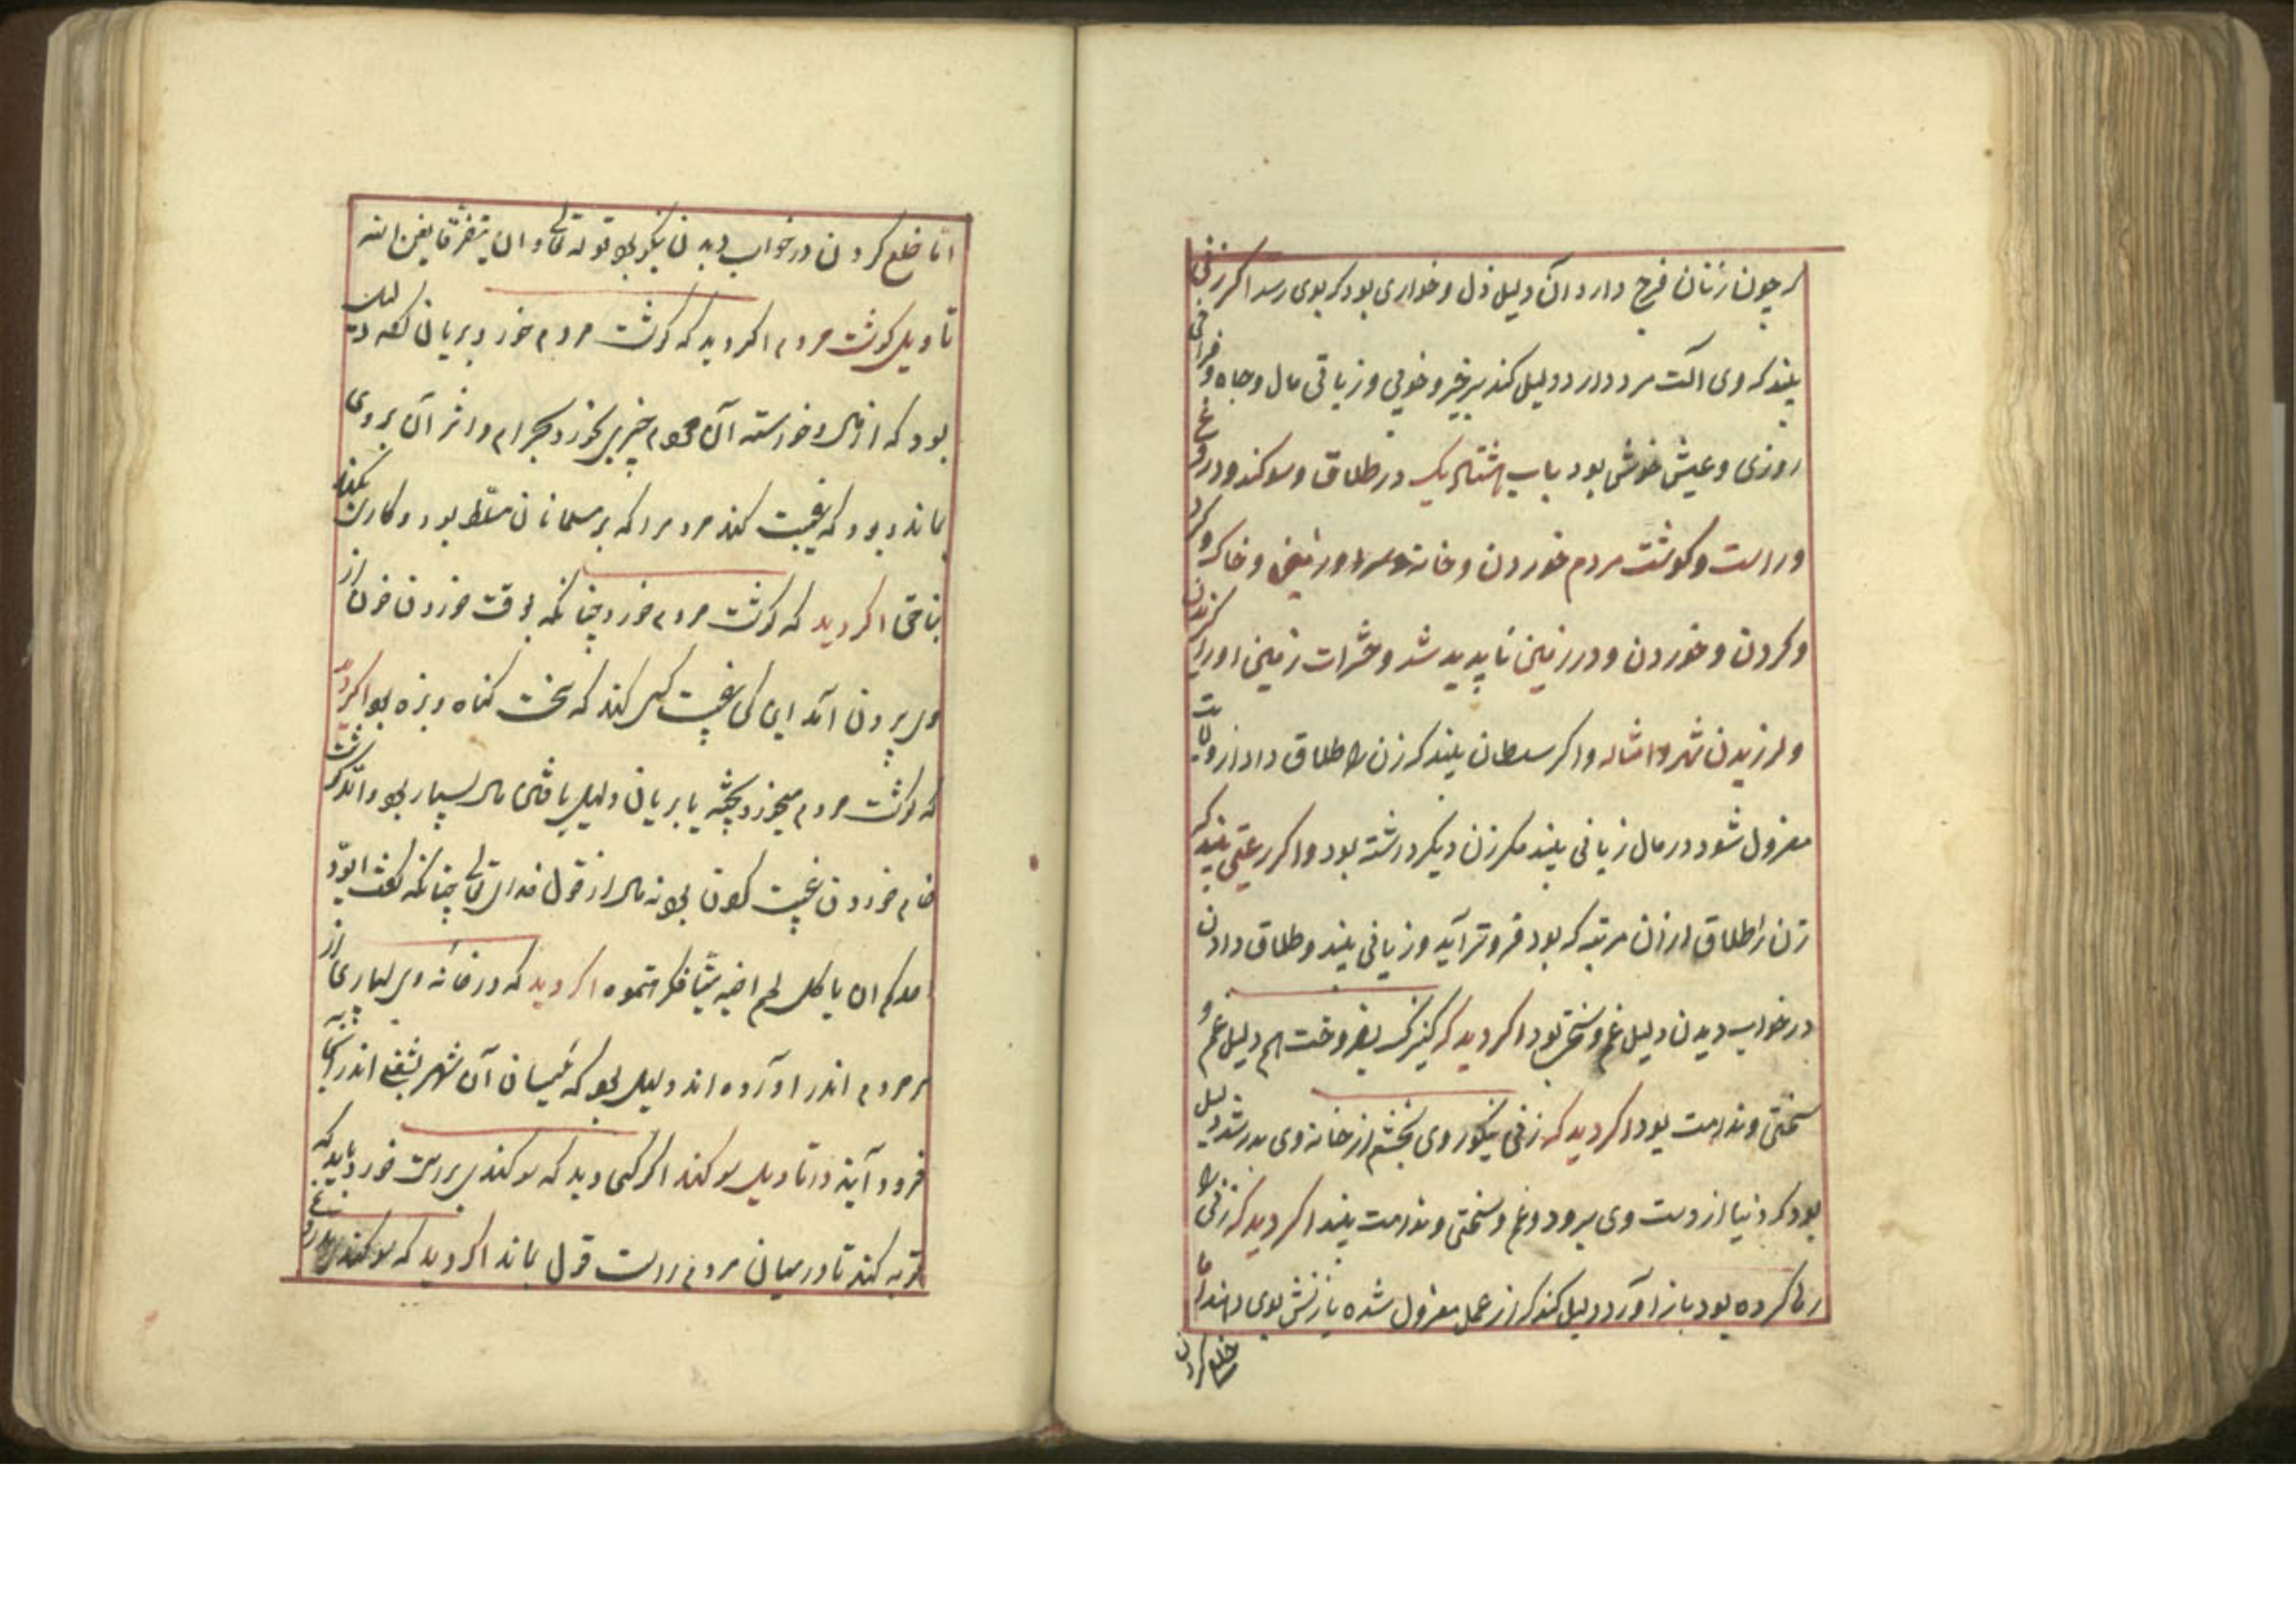 که چون زنان فرج دارد آن دلیل ذل و خواری بود که بوی رسد اکر زنی
بیند که وی آلت مرد دارد دلیل کند بر خیر و خوبی و زیاتی مال و جاه و فراخی
روزی و عیش خوش بود باب هشتاد یک در طلاق و سوکند دروغ
و راست و کوشت مردم خوردن و خانه و سرا و زمین و خاک و کرد
و کردن و خوردن و در زمین ناپدید شد و حشرات زمین او را کزیدن
و لرزیدن شهر و امثاله و اکر سلطان بیند که زن را طلاق داد از ولایت
معزول شود در مال زیانی بیند مکر زن دیکر داشته بود و اکر رعیتی بیند که
زن را طلاق از آن مرتبه که بود فروتر آید و زیانی بیند و طلاق دادن
در خواب دیدن دلیل غم و سختی بود اکر دید که کنیزک بفروخت هم دلیل غم و
سختی و ندامت بود اکر دید که زنی نیکو روی بخشم از خانه وی بدر شد دلیل
بود که دنیا از دست وی برود و غم و سختی و ندامت بیند اکر دید که زنی را
رها کرده بود باز آورد دلیل کند که از عمل معزول شده بازنش بوی دهند اما
خلع کردن
اما خلع کردن در خواب دیدن نیکو بود قوله تعالی و ان یتفرقا یغن الله
تاویل کوشت مردم اکر دید که کوشت مردم خورد بریان کفته دلیل
بود که از مال و خواسته آن مردم چیزی بخورد بحرام و اثر آن بروی
بماند و بود که غیبت کند مردمرا که بر مسلمانان مسلط بود و کاری کند
بناحق اکر دید که کوشت مردم خورد چنانکه بوقت خوردن خون از
وی بیرون آمد این کس غیبت کسی کند که سخت کناه و بزه بود اکر دید
که کوشت مردم میخورد پخته یا بریان دلیل یافتن مال بسیار بود و آنکه کوشت
خام خوردن غیبت کردن بود نه مال از قول خدای تعالی چنانکه کفت ایود
احدکم ان یاکل لحم اخیه میتا فکرهتموه اکر دید که در خانه وی بسیاری از
سر مردم اندر آورده اند دلیل بود که کسان آن شهر بشغلی اندر آنجا
فرود آیند در تاویل سوکند اکر کسی دید که سوکند براست خورد باید که
توبه کند تا در میان مردم راست قول باند اکر دید که سوکند بدروغ